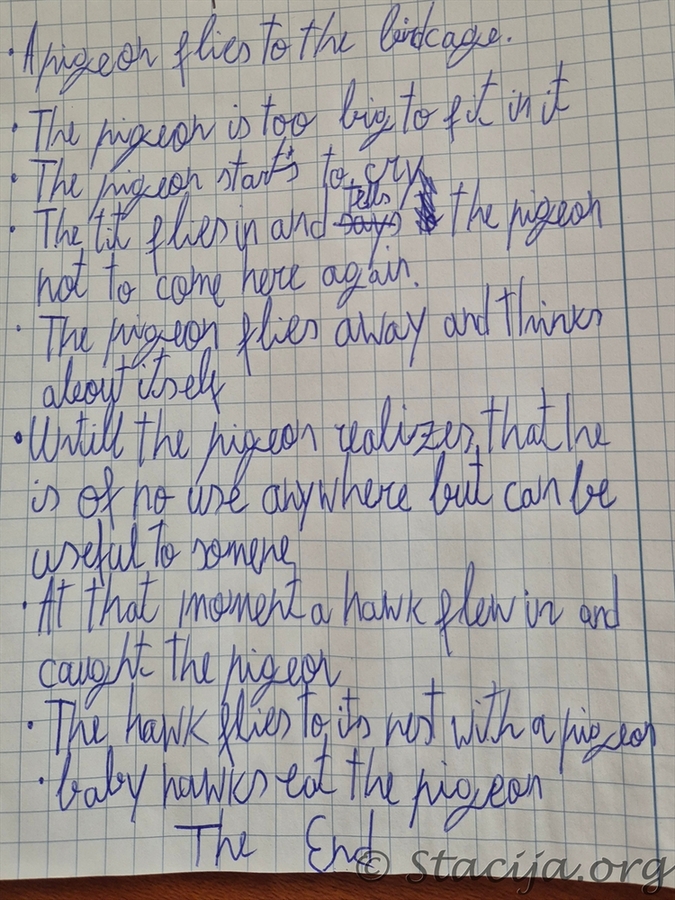 · A pigeon flies to the birdcage.
· The pigeon is too big to fit in it
· The pigeon starts to cry
· The tit flies in and says tells the pigeon
not to come here again.
· The pigeon flies away and thinks
about itself
· Untill the pigeon realizes that he
is of no use anywhere but can be
useful to somene
· At that moment a hawk flew in and
caught the pigeon
· The hawk flies to its nest with a pigeon
· baby hawks eat the pigeon
The End
© Stacija.org